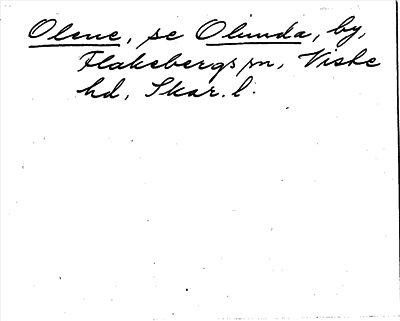 Olene, se Olunda, by,
Flakebergs sn, Viste
hd, Skar. l.